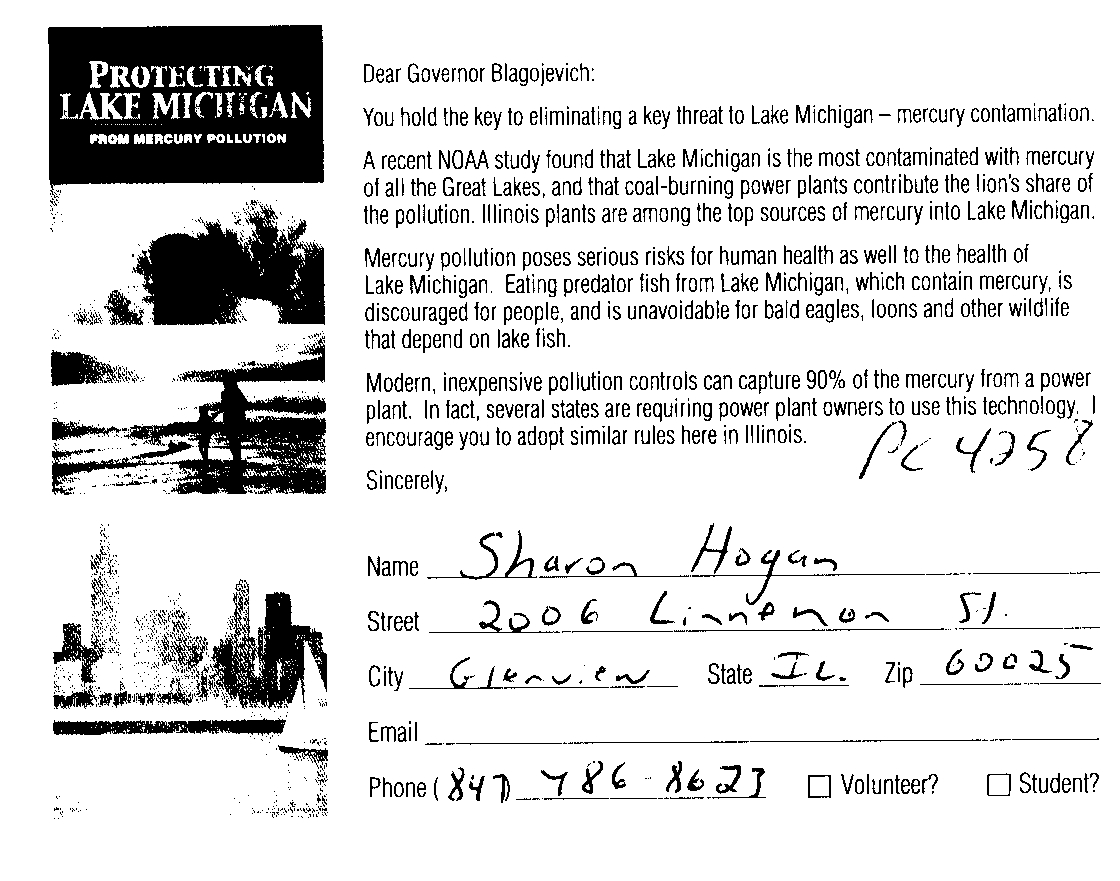 PROTECTING
LAKE MICHIGAN
FROM MERCURY POLLUTION
Dear Governor Blagojevich:
You hold the key to eliminating a key threat to Lake Michigan – mercury contamination.
A recent NOAA study found that Lake Michigan is the most contaminated with mercury
of all the Great Lakes, and that coal-burning power plants contribute the lion's share of
the pollution. Illinois plants are among the top sources of mercury into Lake Michigan.
Mercury pollution poses serious risks for human health as well to the health of
Lake Michigan. Eating predator fish from Lake Michigan, which contain mercury, is
discouraged for people, and is unavoidable for bald eagles, loons and other wildlife
that depend on lake fish.
Modern, inexpensive pollution controls can capture 90% of the mercury from a power
plant. In fact, several states are requiring power plant owners to use this technology. I
encourage you to adopt similar rules here in Illinois.
PC 4258
Sincerely,
Name Sharon Hogan
Street 2006 Linneman St.
City Glenview State IL. Zip 60025
Email
Phone (847) 486-8623 Volunteer? Student?